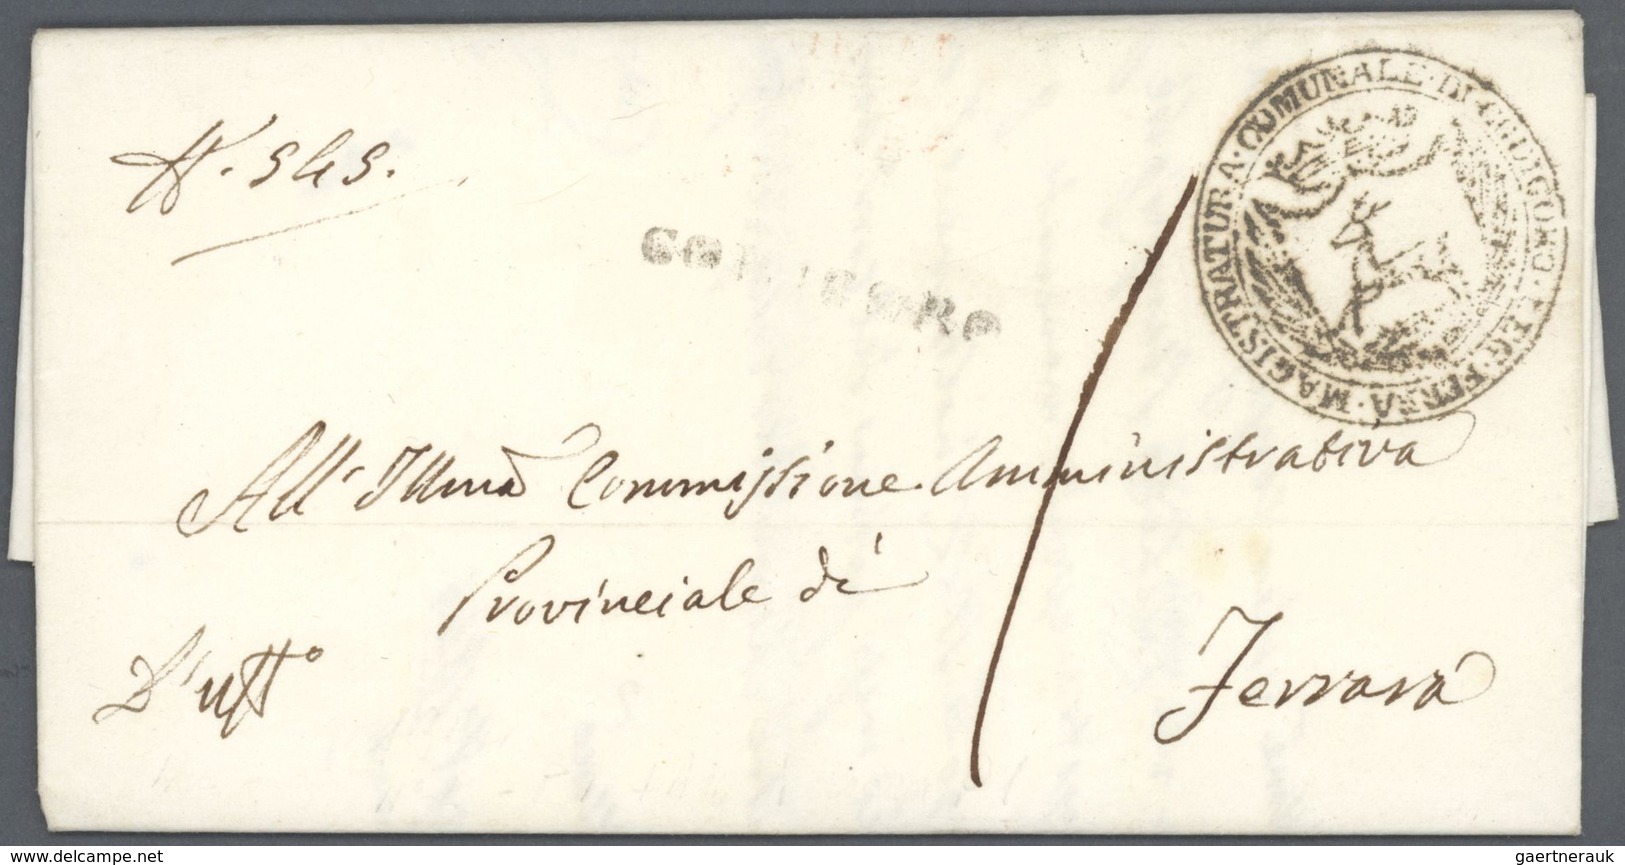 N. 545.
CODIGORO
MAGISTRATURA · COMUNALE · DI · CODIGORO · LEG · FERRA ·
All' Illma Commissione Amministrativa
Provinciale di
Ferrara
D'uffo
www.delcampe.net
gaertnerauk